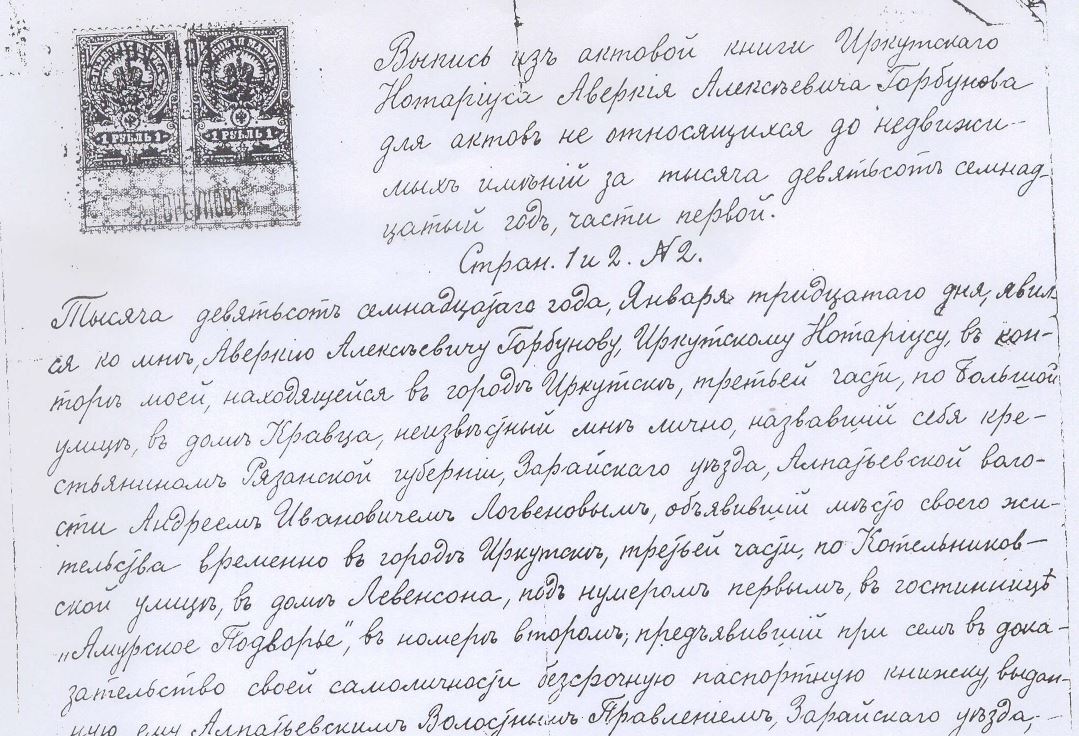 1 РУБЛЬ 1
1 РУБЛЬ 1
Выпись изъ актовой книги Иркутскаго
Нотаріуса Аверкія Алексѣевича Горбунова
для актовъ не относящихся до недвижи-
мыхъ имѣній за тысяча девятьсотъ семнад-
цатый годъ, части первой.
Стран. 1 и 2. N 2.
Тысяча девятьсотъ семнадцатаго года, Января тридцатаго дня, явил-
ся ко мнѣ, Аверкію Алексѣевичу Горбунову, Иркутскому Нотаріусу, въ кон-
торѣ моей, находящейся въ городѣ Иркутскѣ, третьей части, по Большой
улицѣ, въ домѣ Кравца, неизвѣстный мнѣ лично, назвавшій себя кре-
стьяниномъ Рязанской губерніи, Зарайскаго уѣзда, Алпатьевской воло-
сти Андреемъ Ивановичемъ Логвеновымъ, объявившій мѣсто своего жи-
тельства временно въ городѣ Иркутскѣ, третьей части, по Котельников-
ской улицѣ, въ домѣ Левенсона, подъ нумеромъ первымъ, въ гостинницѣ
„Амурское Подворье", въ номерѣ второмъ, предъявившій при семъ въ дока-
зательство своей самоличности безсрочную паспортную книжку, выдан-
ную ему Алпатьевскимъ Волостнымъ Правленіемъ, Зарайскаго уѣзда,-